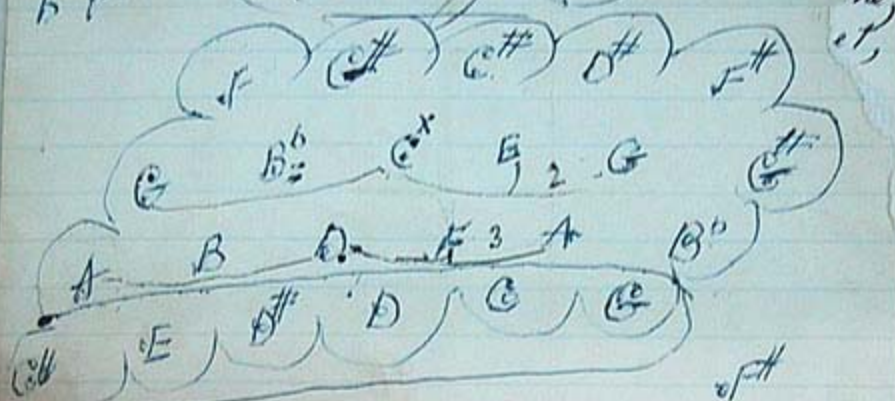 F G# C# D# F#
G Bb Cx E 2 G G#
A B D F 3 A Bb
C# E D# D C G
F#